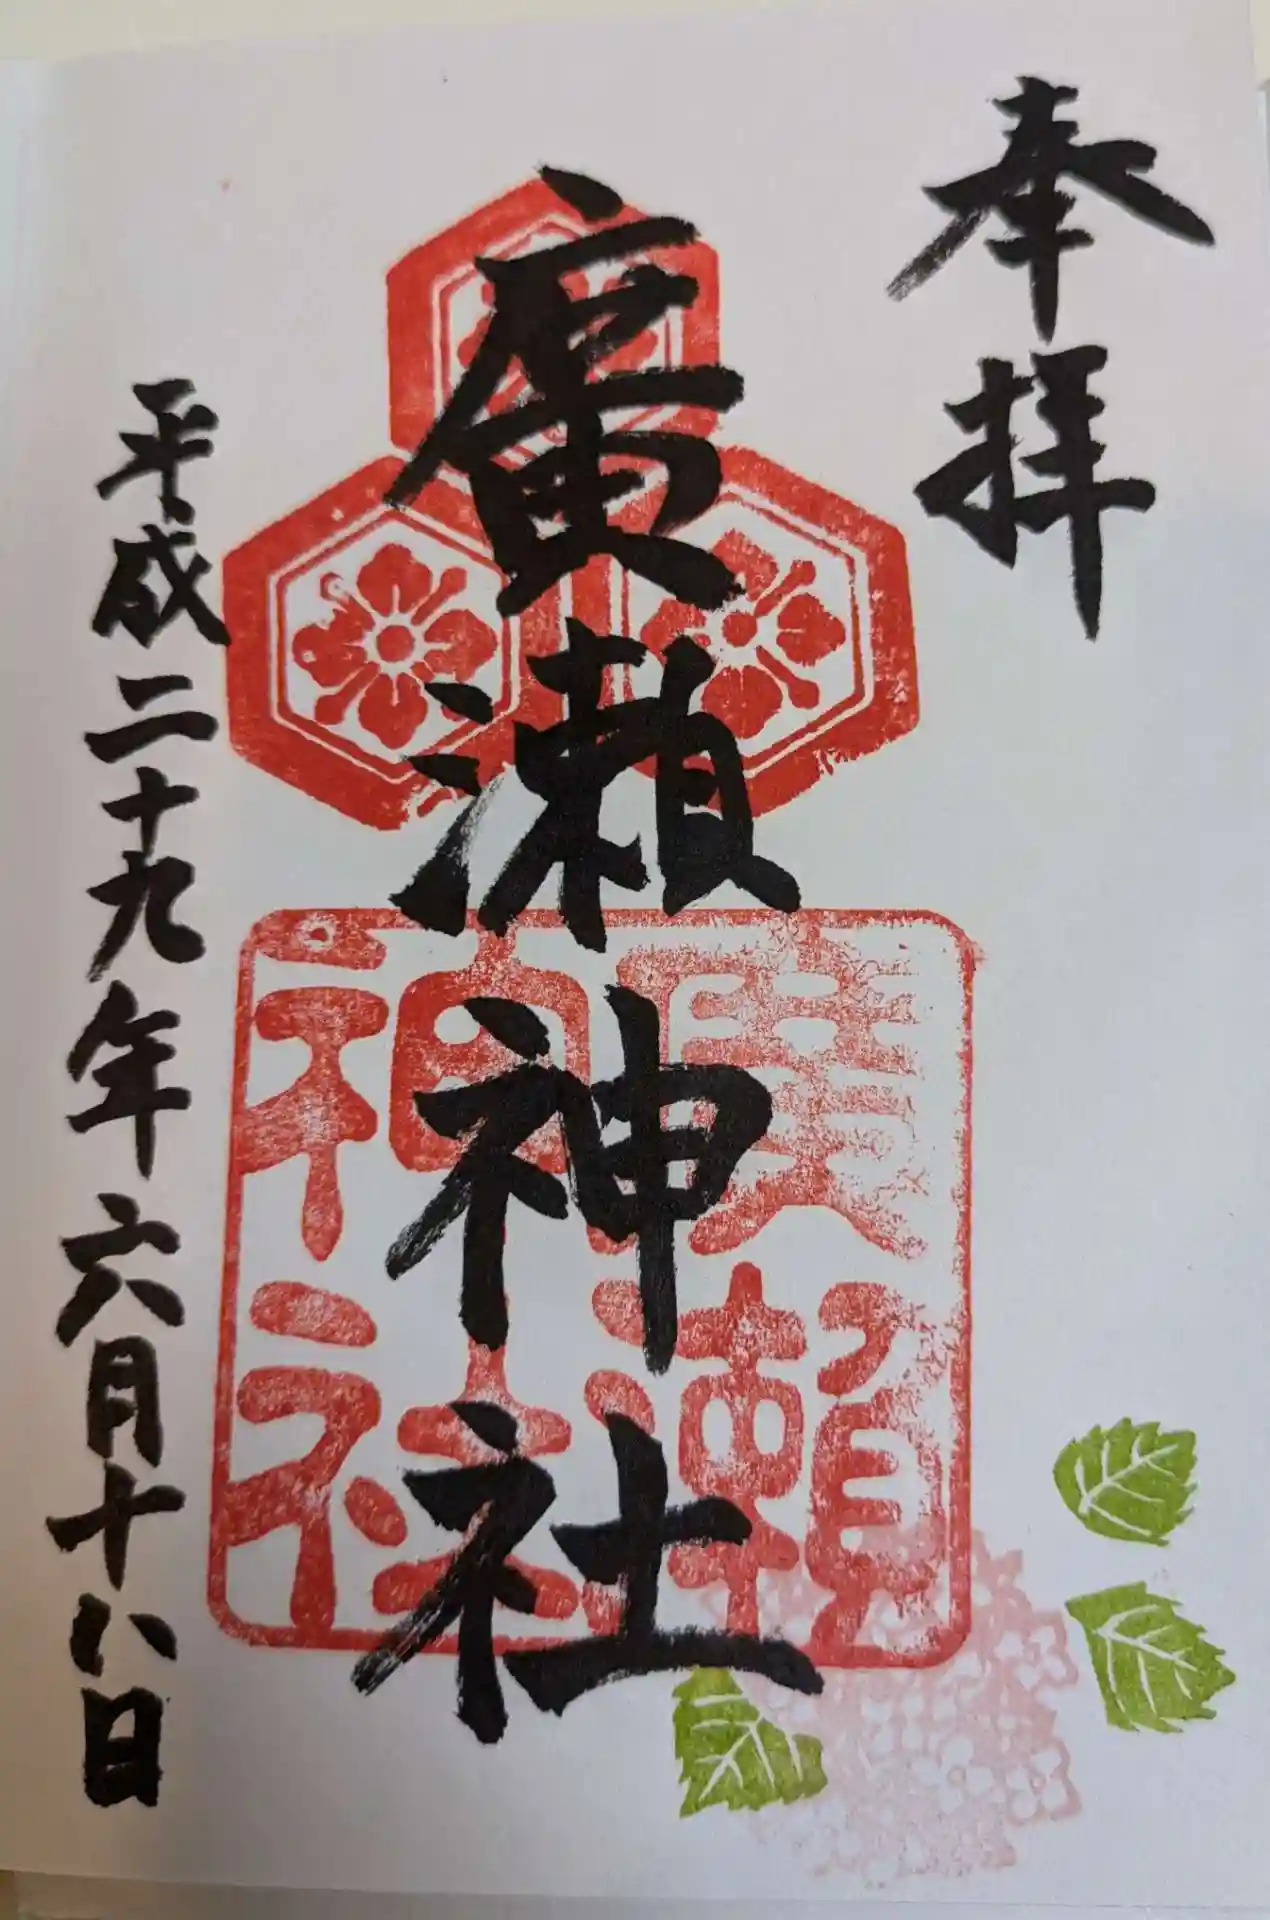 奉拝
廣瀬神社
廣瀬
神社
平成二十九年六月十八日